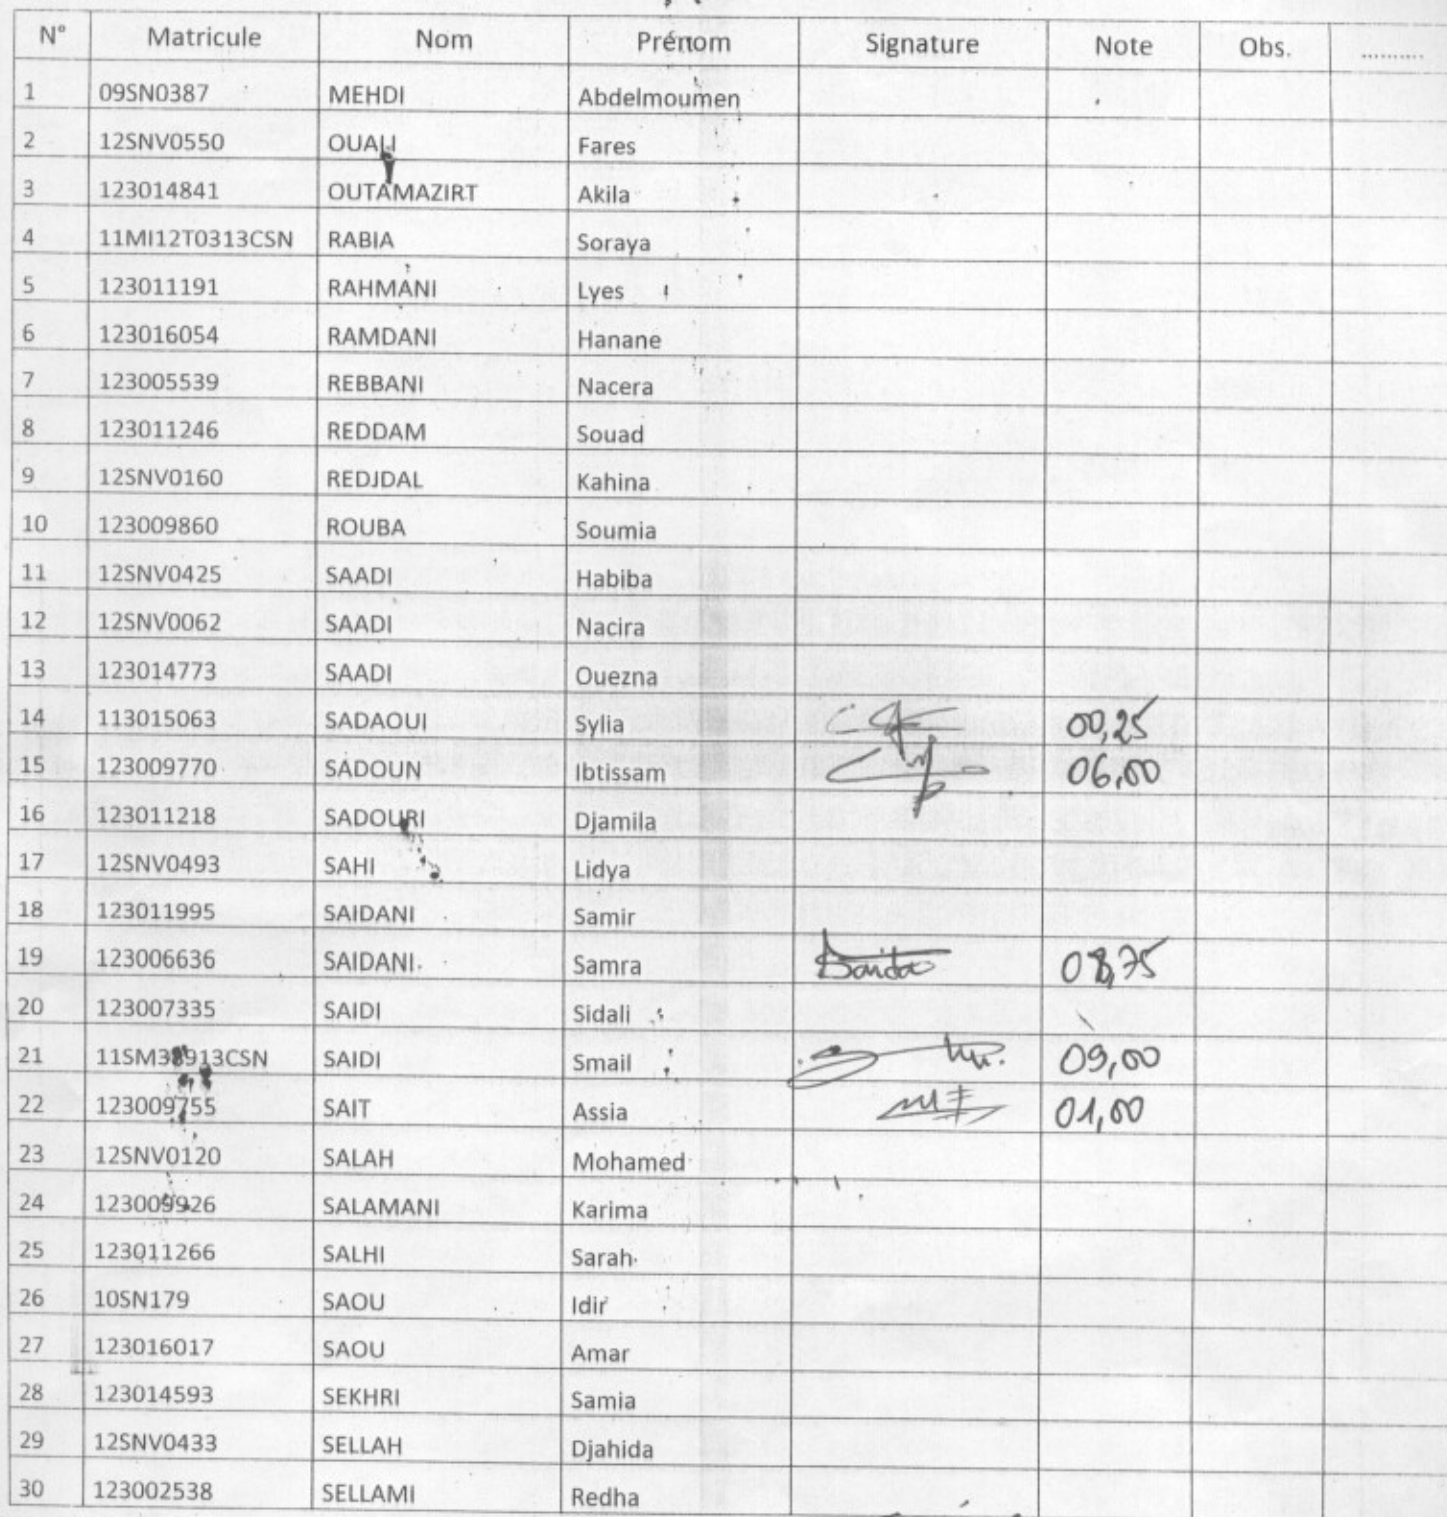 N° Matricule Nom Prénom Signature Note Obs. ...........
1 09SN0387 MEHDI Abdelmoumen
2 12SNV0550 OUALI Fares
3 123014841 OUTAMAZIRT Akila
4 11MI12T0313CSN RABIA Soraya
5 123011191 RAHMANI Lyes
6 123016054 RAMDANI Hanane
7 123005539 REBBANI Nacera
8 123011246 REDDAM Souad
9 12SNV0160 REDJDAL Kahina
10 123009860 ROUBA Soumia
11 12SNV0425 SAADI Habiba
12 12SNV0062 SAADI Nacira
13 123014773 SAADI Ouezna
14 113015063 SADAOUI Sylia 00,25
15 123009770 SADOUN Ibtissam 06,00
16 123011218 SADOURI Djamila
17 12SNV0493 SAHI Lidya
18 123011995 SAIDANI Samir
19 123006636 SAIDANI Samra 08,75
20 123007335 SAIDI Sidali
21 SAIDI Smail 09,00
22 123009755 SAIT Assia 01,00
23 12SNV0120 SALAH Mohamed
24 123009926 SALAMANI Karima
25 123011266 SALHI Sarah
26 10SN179 SAOU Idir
27 123016017 SAOU Amar
28 123014593 SEKHRI Samia
29 12SNV0433 SELLAH Djahida
30 123002538 SELLAMI Redha